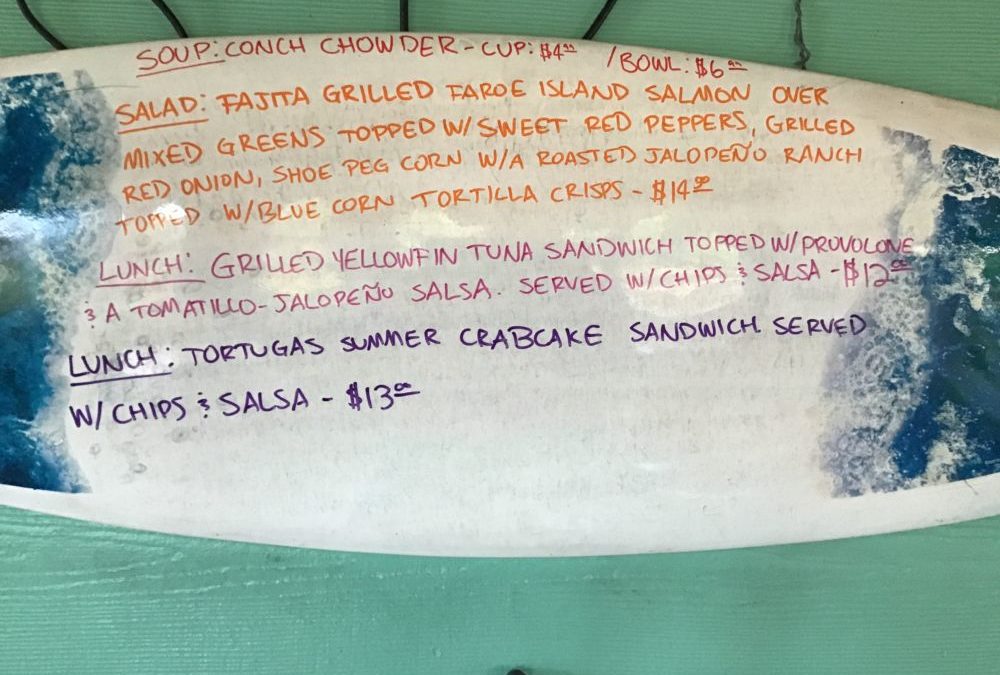 SOUP: CONCH CHOWDER - CUP: $4.99 /BOWL: $6.99
SALAD: FAJITA GRILLED FAROE ISLAND SALMON OVER
MIXED GREENS TOPPED W/ SWEET RED PEPPERS, GRILLED
RED ONION, SHOE PEG CORN W/A ROASTED JALOPEÑO RANCH
TOPPED W/BLUE CORN TORTILLA CRISPS - $14.00
LUNCH: GRILLED YELLOWFIN TUNA SANDWICH TOPPED W/ PROVOLONE
& A TOMATILLO-JALOPEÑO SALSA. SERVED W/ CHIPS & SALSA - $12.00
LUNCH: TORTUGAS SUMMER CRABCAKE SANDWICH SERVED
W/ CHIPS & SALSA - $13.00